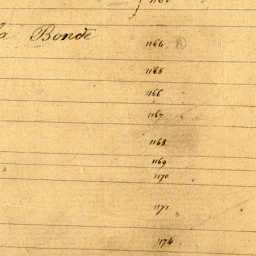 Bonde
1164
1165
1166
1167
1168
1169
1170
1171
1174